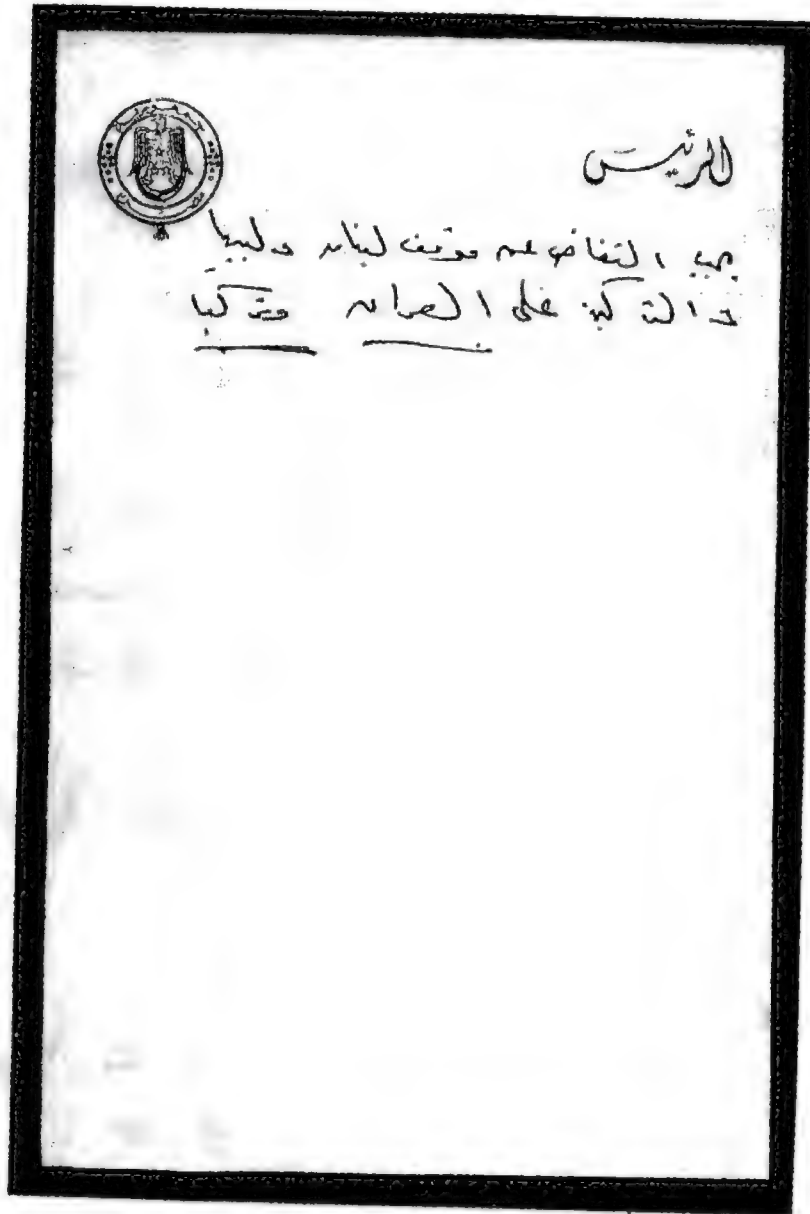 الرئيس
يجب التغاضي عن موقف لبنان وليبيا
والتركيز على العراق وتركيا